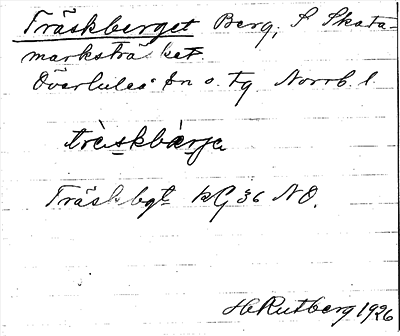 Träskberget Berg, S Skata-
marksträsket.
Överluleå sn o. tg Norrb. l.
träskbærjɛ
Träskbgt kG 36 NO.
H Rutberg 1926